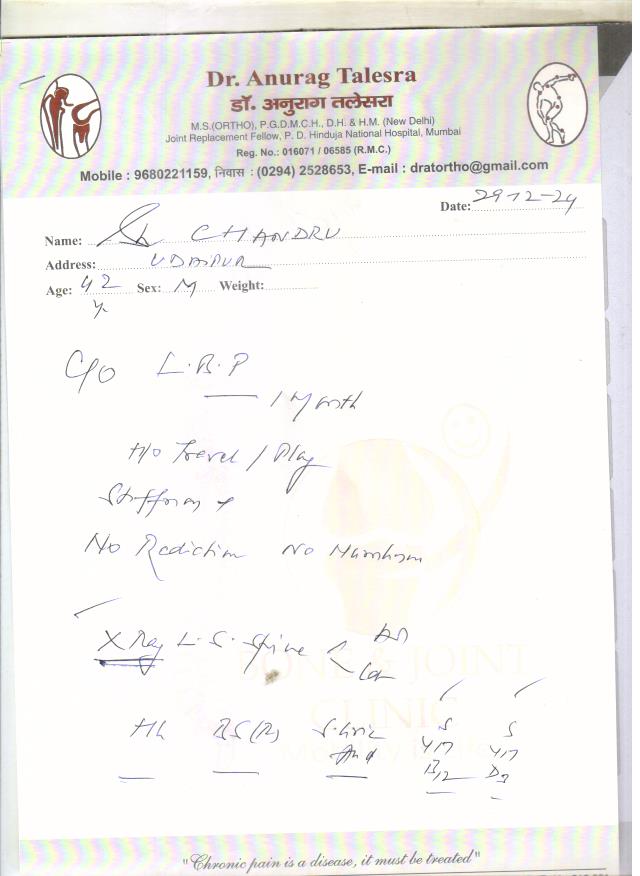 Dr. Anurag Talesra
डॉ. अनुराग तलेसरा
M.S.(ORTHO), P.G.D.M.C.H., D.H. & H.M. (New Delhi)
Joint Replacement Fellow, P. D. Hinduja National Hospital, Mumbai
Reg. No.: 016071 / 06585 (R.M.C.)
Mobile : 9680221159, निवास : (0294) 2528653, E-mail : dratortho@gmail.com
Date: 29-12-24
Name: CHANDRU
Address: UDAIPUR
Age: 42 Sex: M Weight:
y.
C/O L.B.P
1 Month
H/o Travel / Play
Stiffness +
No Radiction No Numbness
X Ray L.S. Spine < AP
Lat
BONE & JOINT
CLINIC
Hb BS(R) S. Uric S S
Acid Vit Vit
B12 D3
"Chronic pain is a disease, it must be treated"